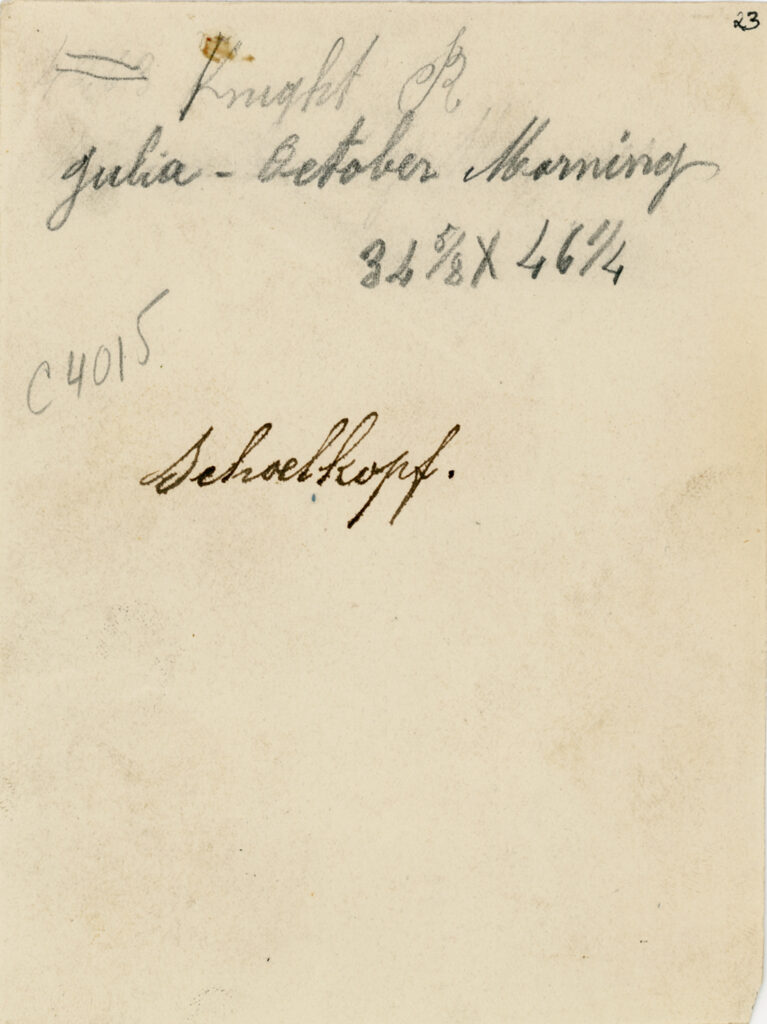 23
Knight R
Julia - October Morning
34 5/8 X 46 1/4
C4015
Schoelkopf.